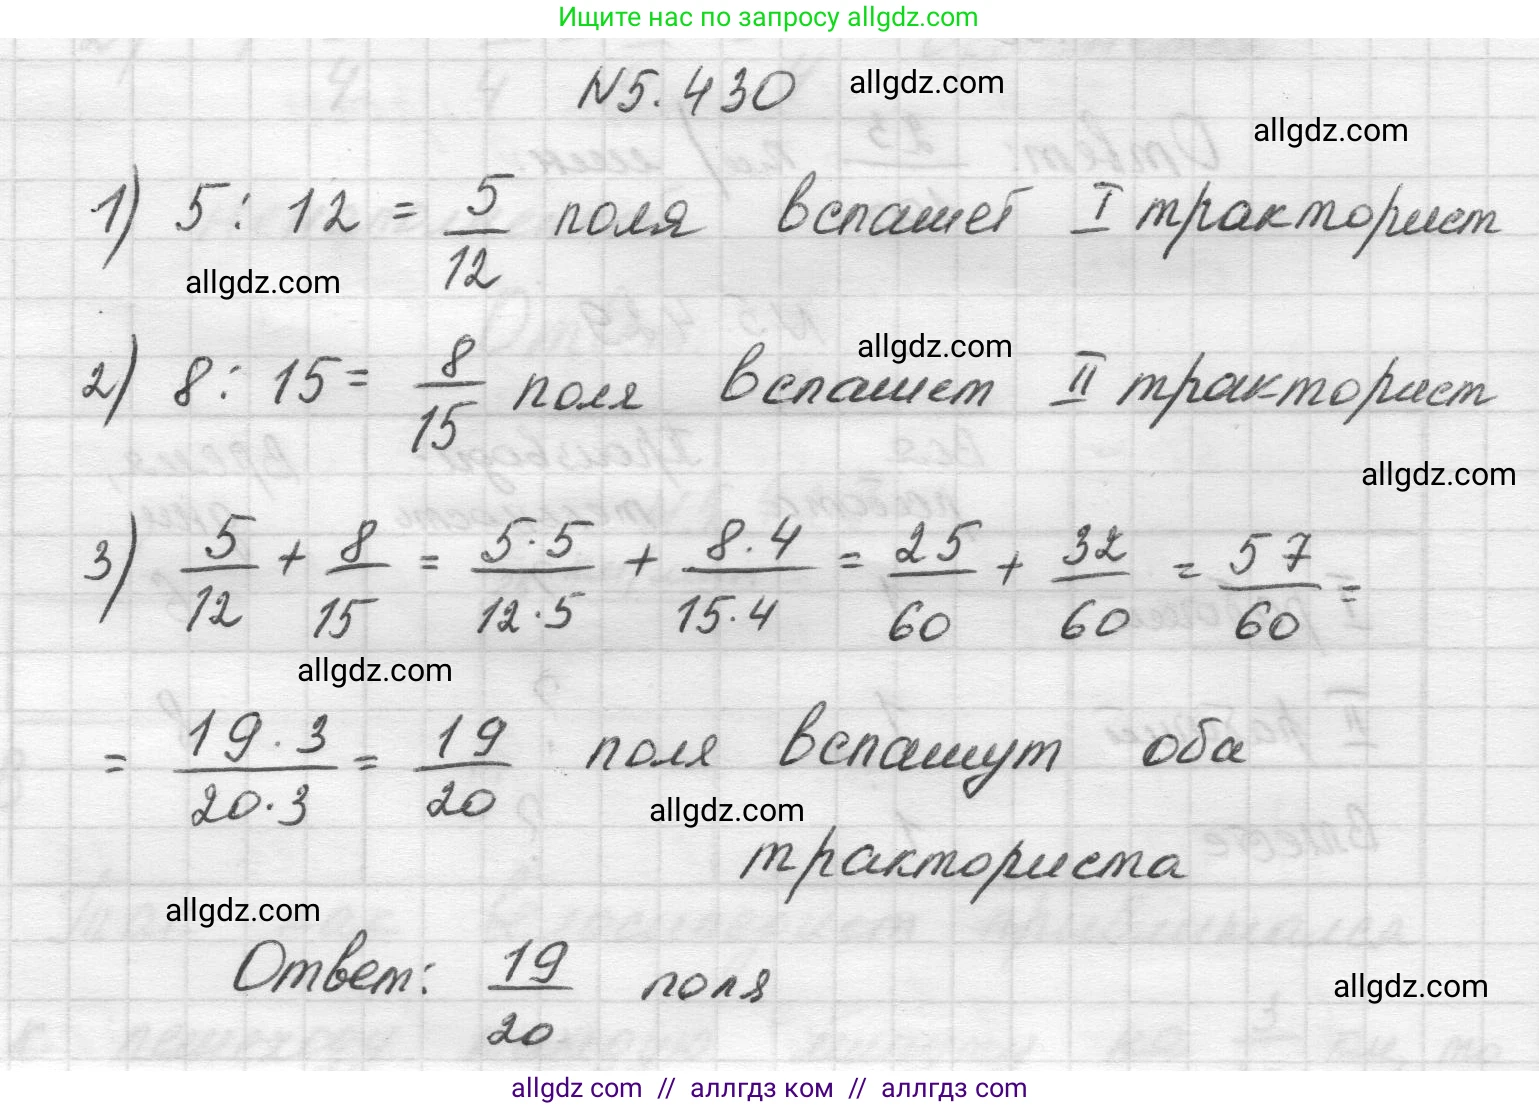 Ищите нас по запросу allgdz.com
№5.430 allgdz.com
allgdz.com
1) 5 : 12 = 5/12 поля вспашет I тракторист
allgdz.com
allgdz.com
2) 8 : 15 = 8/15 поля вспашет II тракторист
allgdz.com
3) 5/12 + 8/15 = 5·5/12·5 + 8·4/15·4 = 25/60 + 32/60 = 57/60 =
allgdz.com
= 19·3/20·3 = 19/20 поля вспашут оба
allgdz.com
тракториста
allgdz.com
Ответ: 19/20 поля
allgdz.com
allgdz com // аллгдз ком // аллгдз com